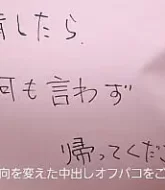 着したら
何も言わず
帰ってくだ
向を変えた中出しオフパコをこ